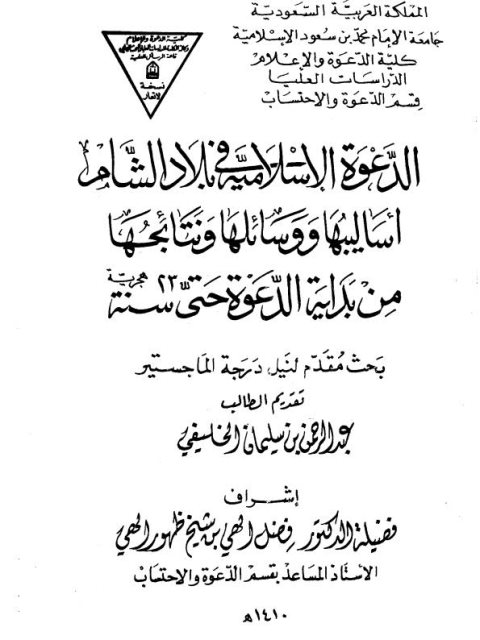 المملكة العربية السعودية
جامعة الإمام محمد بن سعود الإسلامية
كلية الدعوة والإعلام
الدراسات العليا
قسم الدعوة والاحتساب
كلية الدعوة والإعلام
نسخة
لا تعار
الدَّعْوَة الإسْلاميَّة في بلاد الشَّام
أسَاليبُهَا وَوَسَائلهَا وَنَتَائجُهَا
مِنْ بَدَايَة الدَّعْوَة حَتَّى سَنة ٢٣ هجريَّة
بَحث مُقَدَّم لنَيل دَرَجَة المَاجستير
تقديم الطالب
عبدالرحمن بن سليمان الخليفي
إشراف
فضيلة الدكتور فضل الهي بن شيخ ظهور الهي
الأستاذ المساعد بقسم الدعوة والاحتساب
١٤١٠هـ